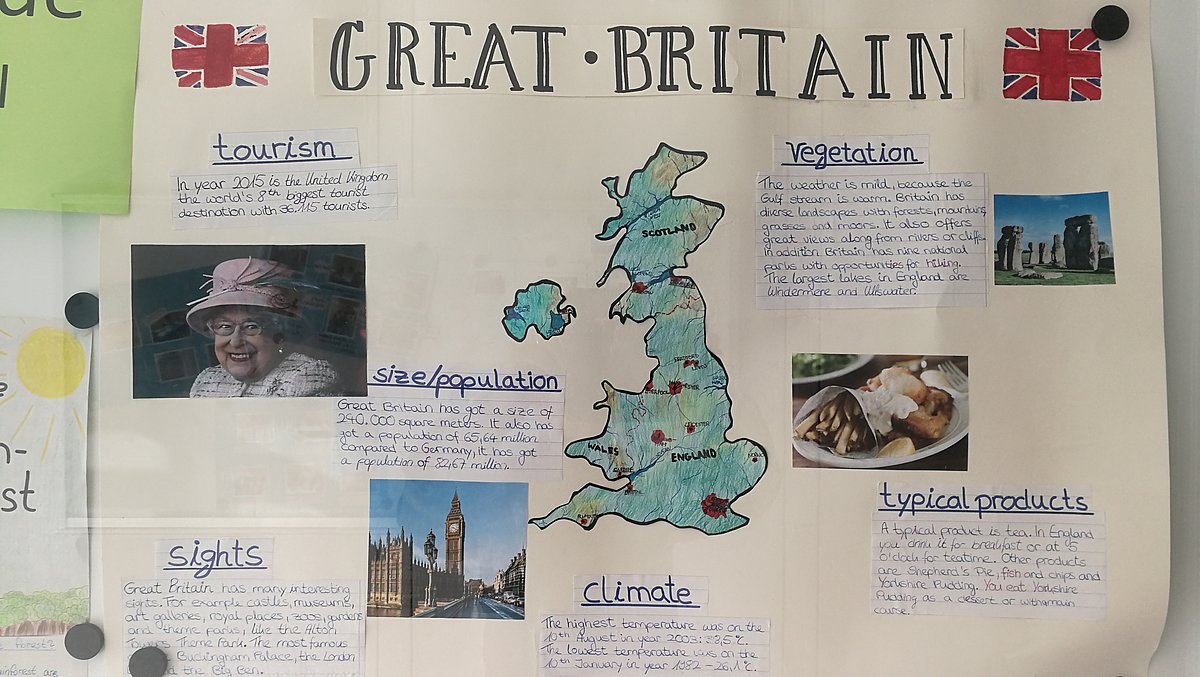 GREAT·BRITAIN
tourism
In year 2015 is the United Kingdom
the world's 8th biggest tourist
destination with 36.115 tourists.
size/population
Great Britain has got a size of
240.000 square meters. It also has
got a population of 65,64 million
compared to Germany, it has got
a population of 82,67 million.
sights
Great Britain has many interesting
sights. For example castles, museums,
art galleries, royal places, zoos, gardens
and theme parks, like the Alton
Towers Theme Park. The most famous
Buckingham Palace, the London
the Big Ben.
SCOTLAND
WALES
ENGLAND
climate
The highest temperature was on the
10th August in year 2003: 38,5°C.
The lowest temperature was on the
10th January in year 1982 -26,1°C.
vegetation
The weather is mild, because the
Gulf stream is warm. Britain has
diverse landscapes with forests, mountains,
grasses and moors. It also offers
great views along from rivers or cliffs.
In addition Britain has nine national
parks with opportunities for hiking.
The largest lakes in England are
Windermere and Ullswater.
typical products
A typical product is tea. In England
you drink it for breakfast or at 5
o'clock for teatime. Other products
are Shepherd's Pie, fish and chips and
Yorkshire Pudding. You eat Yorkshire
Pudding as a dessert or with main
course.
st
forest?
ainforest are